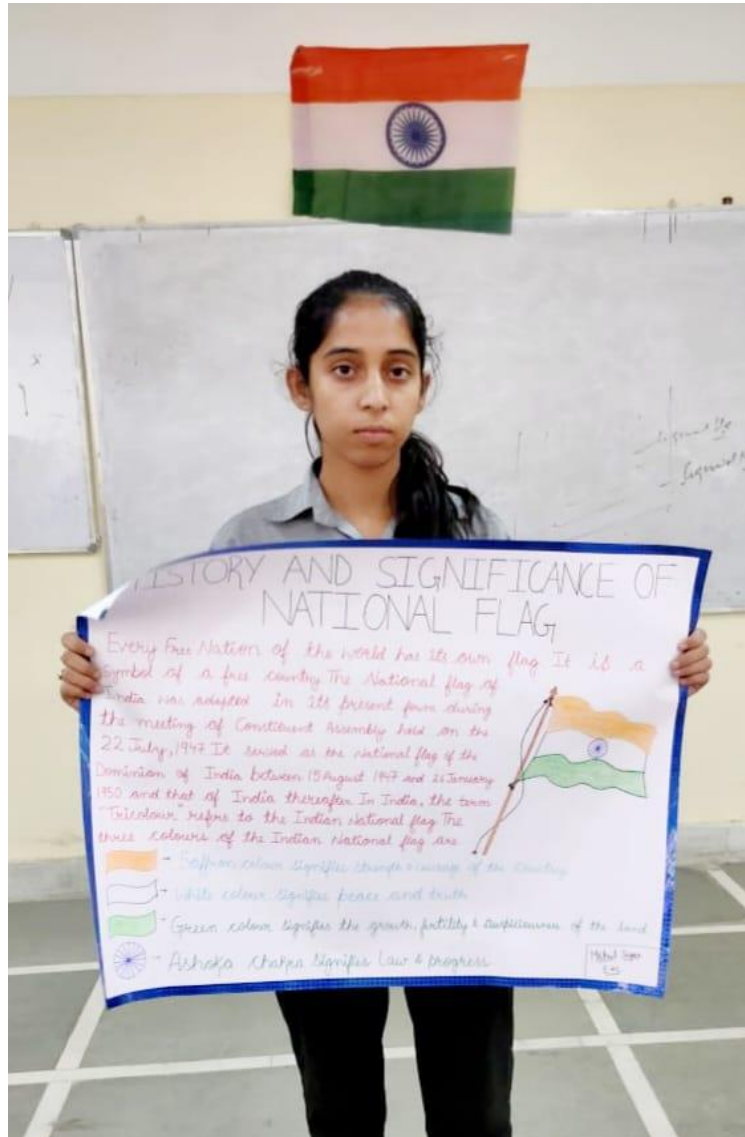 HISTORY AND SIGNIFICANCE OF
NATIONAL FLAG
Every Free Nation of the world has its own flag It is a
symbol of a free country The National flag of
India was adopted in its present form during
the meeting of Constituent Assembly held on the
22 July, 1947 It served as the National flag of the
Dominion of India between 15 August 1947 and 26 January
1950 and that of India thereafter In India, the term
"Tricolour" refrs to the Indian National flag The
three colours of the Indian National flag are
- Saffron colour signifies strength & courage of the Country
- White colour signifies peace and truth
- Green colour signifies the growth, fertility & auspiciousness of the land
- Ashoka chakra signifies Law & progress